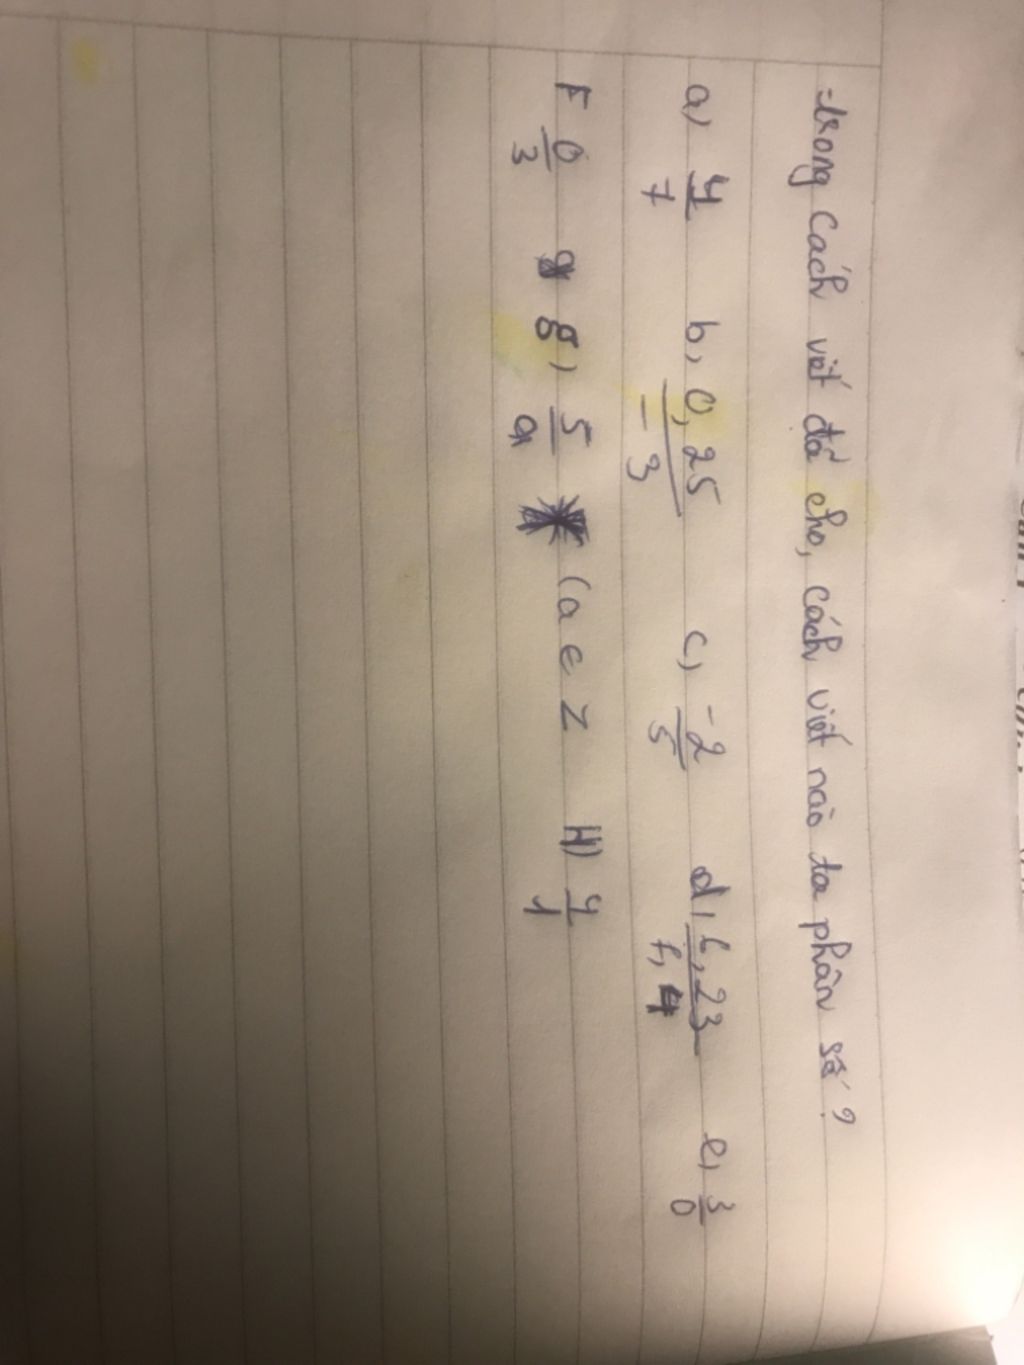 Trong Cách viết đã cho, cách viết nào ta phân số ?
a) 4/7 b, 0,25/-3 c, -2/5 d, 6,23/7,4 e, 3/0
F 0/3 g, 5/a (a ∈ Z H) 4/1